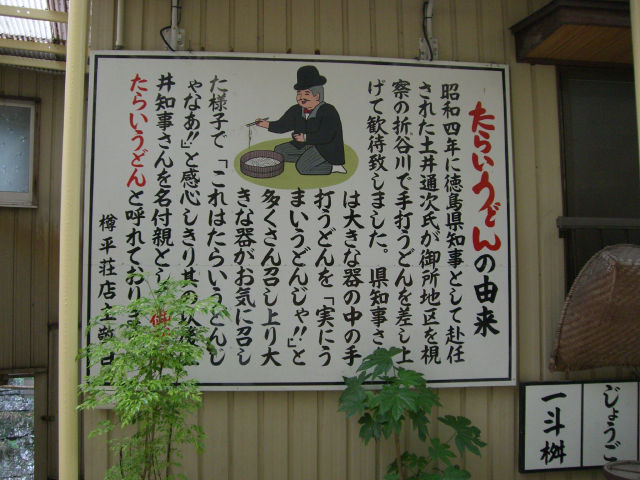 たらいうどんの由来
昭和四年に徳島県知事として赴任
された土井通次氏が御所地区を視
察の折、谷川で手打うどんを差し上
げて歓待致しました。県知事さ
は大きな器の中の手
打うどんを「実にう
まいうどんじゃ!!」と
多くさん召し上り大
きな器がお気に召し
た様子で「これはたらいうどんじ
ゃなあ!!」と感心しきり其の以後
井知事さんを名付親とし
たらいうどんと呼れておりま
樽平荘店主敬白
じょうご
一斗桝